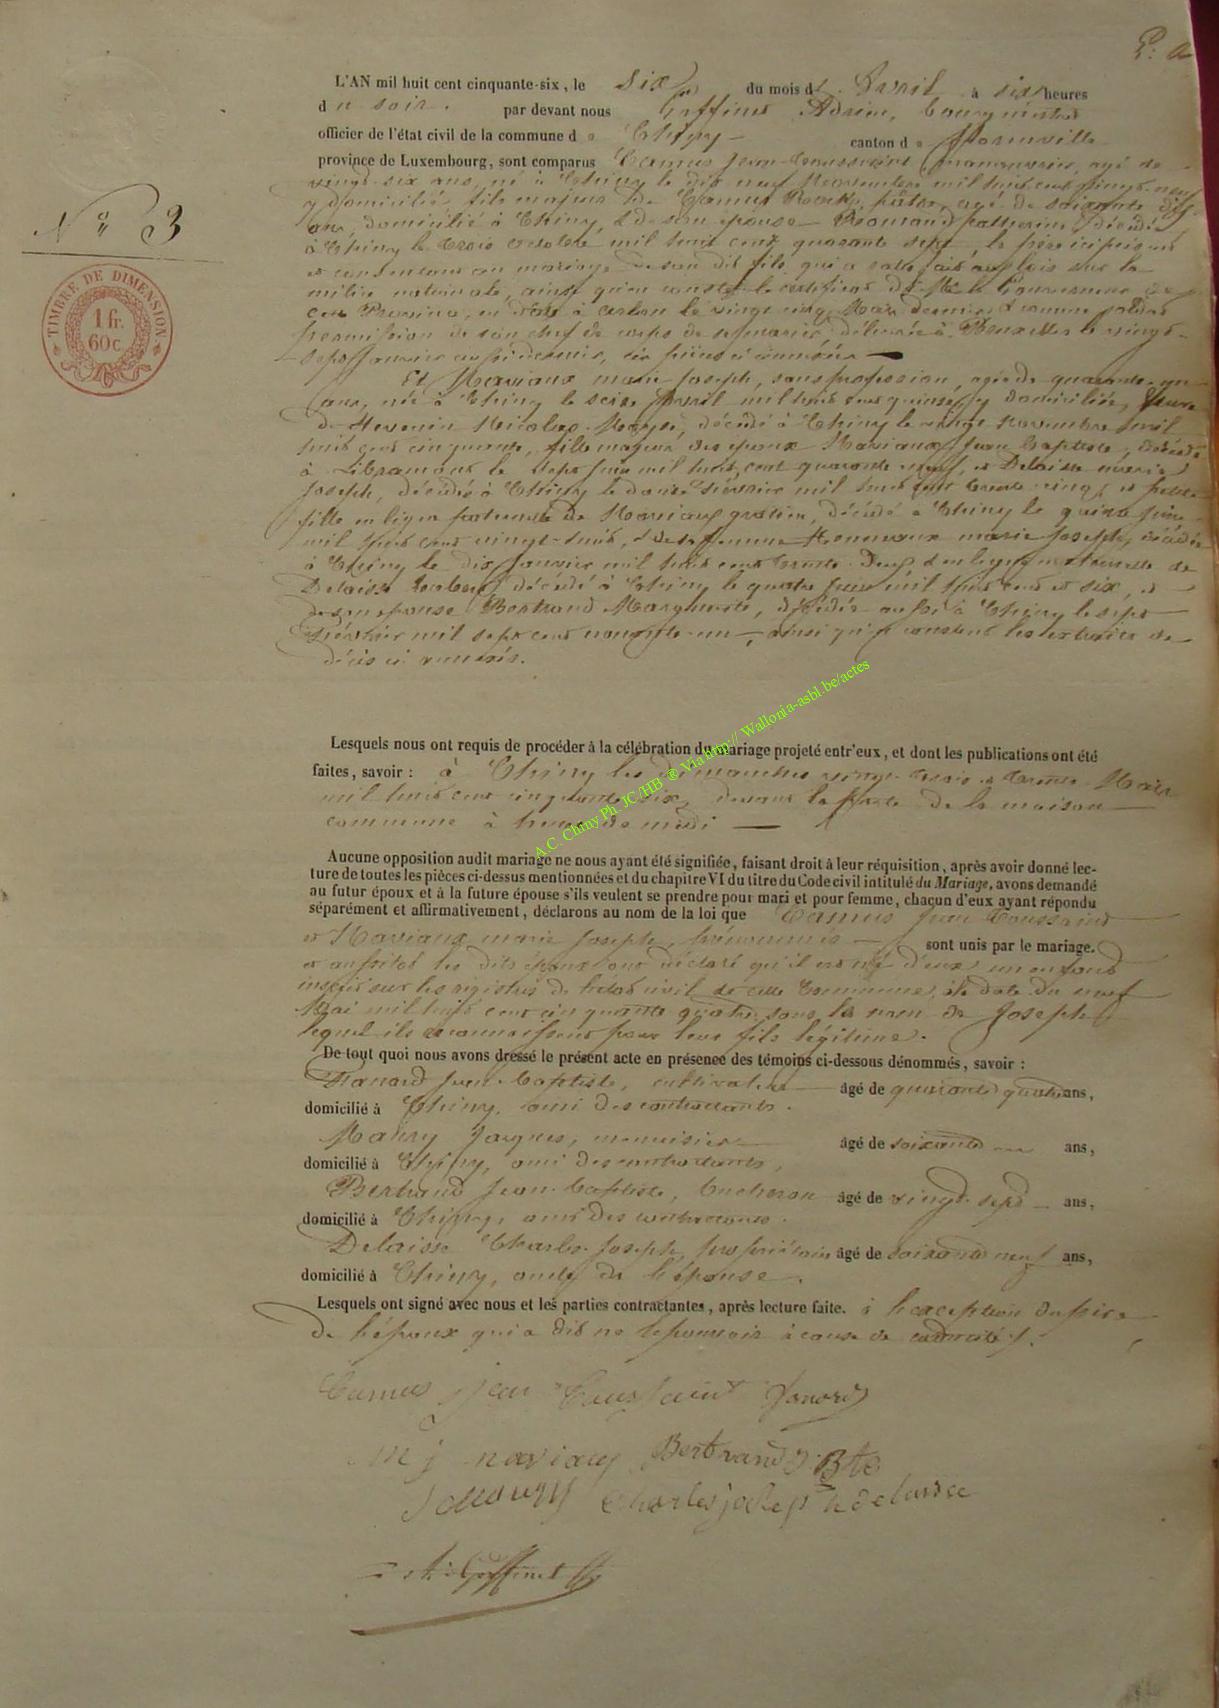 L'AN mil huit cent cinquante-six, le six du mois d'Avril à six heures
du soir. par devant nous Goffinet Adrien, bourgmestre
officier de l'état civil de la commune de Chiny canton de Florenville
province de Luxembourg, sont comparus Camus Jean-Toussaint manouvrier, agé de
vingt-six ans, né à Chiny le dix neuf Novembre mil huit cent vingt-neuf
y domicilié, fils majeur de Camus pâtre, agé de soixante dix
ans, domicilié à Chiny, & de son épouse décédée
à Chiny le trois octobre mil huit cent quarante sept, le père ici présent
et consentant au mariage de son dit fils, qui a satisfait aux lois sur la
milice nationale, ainsi qu'il conste le certificat de Mr le Gouverneur de
cette Province, en date à Arlon le vingt cinq Mars dernier & comme soldat
permission de son chef de corps de se marier, délivrée à Bruxelles le vingt-
sept Janvier aussi dernier, ces pièces ci annexées
Et Naviaux marie Joseph, sans profession, agée de quarante-un
ans, née à Chiny le seize Avril mil huit cent quinze, y domiciliée, veuve
de Nicolas décédé à Chiny le vingt novembre mil
huit cent cinquante, fille majeure des époux Naviaux Jean Baptiste, décédé
à Libramont le sept Juin mil huit cent quarante neuf, et Delaisse marie
Joseph, décédée à Chiny le douze février mil huit cent trente cinq, et petite
fille en ligne paternelle de Naviaux gratien, décédé à Chiny le quinze Juin
mil huit cent vingt-huit, & de sa femme marie Joseph, décédée
à Chiny le dix Janvier mil huit cent trente-deux, & en ligne maternelle de
Delaisse décédé à Chiny le quatre Juin mil huit cent et six, et
de son épouse Bertrand Marguerite, décédée aussi à Chiny le sept
février mil sept cent nonante-un, ainsi qu'il constent les extraits de
décès ci annexés.
Nº 3
TIMBRE DE DIMENSION
1 fr.
60 c.
Lesquels nous ont requis de procéder à la célébration du mariage projeté entr'eux, et dont les publications ont été
faites, savoir : à Chiny les dimanches vingt-trois et trente Mars
mil huit cent cinquante-six, devant la porte de la maison
commune à heure de midi
A.C. Chiny Ph. JC/HB ® Via http:// Wallonia-asbl.be/actes
Aucune opposition audit mariage ne nous ayant été signifiée, faisant droit à leur réquisition, après avoir donné lec-
ture de toutes les pièces ci-dessus mentionnées et du chapitre VI du titre du Code civil intitulé du Mariage, avons demandé
au futur époux et à la future épouse s'ils veulent se prendre pour mari et pour femme, chacun d'eux ayant répondu
séparément et affirmativement, déclarons au nom de la loi que Camus Jean Toussaint
et Naviaux marie Joseph, prénommés sont unis par le mariage.
et aussitôt les dits époux ont déclaré qu'il est né d'eux un enfant
inscrit sur les registres de l'état civil de cette Commune, à la date du neuf
Mai mil huit cent cinquante quatre sous le nom de Joseph
lequel ils reconnaissent pour leur fils légitime.
De tout quoi nous avons dressé le présent acte en présence des témoins ci-dessous dénommés, savoir :
Hanard Jean-Baptiste, cultivateur âgé de quarante quatre ans,
domicilié à Chiny, ami des contractants.
Maury Jacques, menuisier âgé de soixante ans,
domicilié à Chiny, ami des contractants,
Bertrand Jean-Baptiste, bucheron âgé de vingt-sept ans,
domicilié à Chiny, ami des contractants.
Delaisse Charles-Joseph, propriétaire âgé de soixante neuf ans,
domicilié à Chiny, oncle de l'épouse.
Lesquels ont signé avec nous et les parties contractantes, après lecture faite. à l'exception du père
de l'époux qui a dit ne le pouvoir à cause de caducité.
Camus jean Toussaint Hanard
m j naviaux Bertrand J. Bte
J Maury Charles joseph delaisse
A. Goffinet